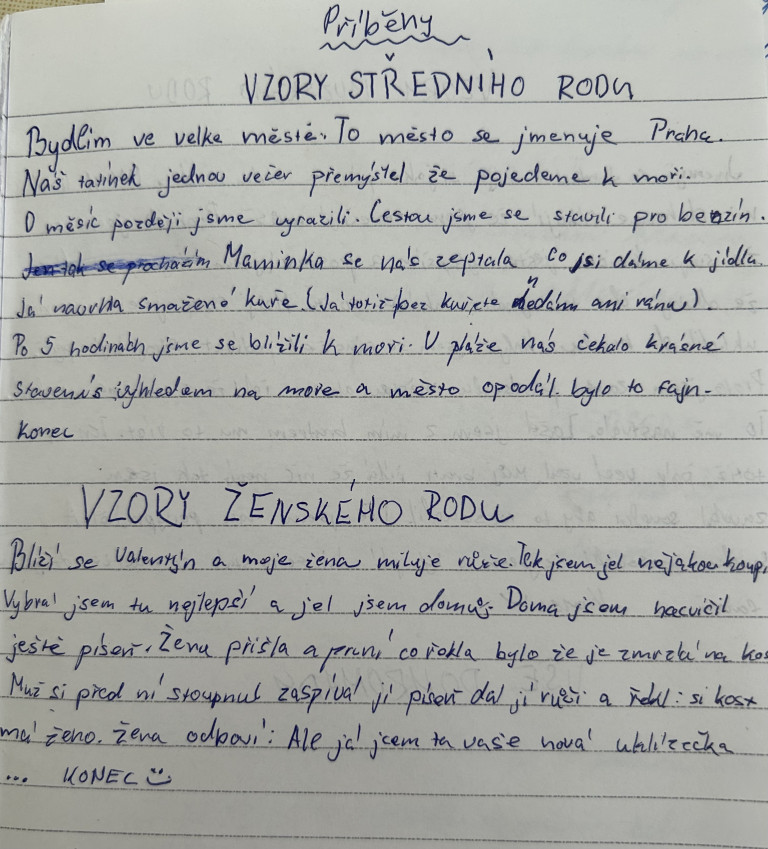 Příběhy
VZORY STŘEDNÍHO RODU
Bydlím ve velké městě. To město se jmenuje Praha.
Náš tatínek jednou večer přemýšlel že pojedeme k moři.
O měsíc později jsme vyrazili. Cestou jsme se stavili pro benzín.
Jen tak se procházím Maminka se nás zeptala co jsi dáme k jídlu.
Já navrhla smažené kuře. (Já totiž bez kuřete nedám ani ránu).
Po 5 hodinách jsme se blížili k moři. U pláže nás čekalo krásné
stavení s výhledem na moře a město opodál. bylo to fajn.
Konec
VZORY ŽENSKÉHO RODU
Blíží se Valentýn a moje žena miluje růže. Tak jsem jel nějakou koup
Vybral jsem tu nejlepší a jel jsem domů. Doma jsem nacvičil
ještě píseň. Žena přišla a první co řekla bylo že je zmrzlá na kos
Muž si před ní stoupnul zaspíval jí píseň dal jí růži a řekl: si kost
má ženo. Žena odpoví: Ale já jsem ta vaše nová uklízečka
... KONEC